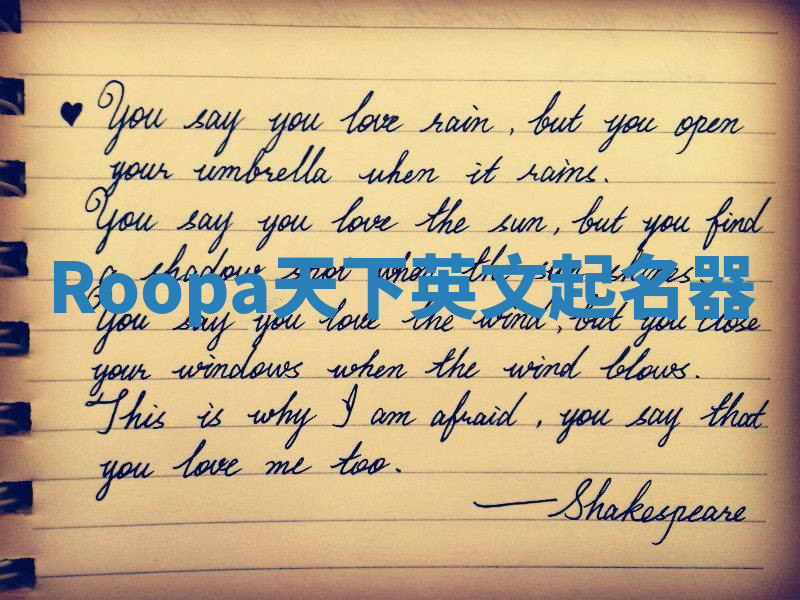 ♥ You say you love rain, but you open
your umbrella when it rains.
You say you love the sun, but you find
a shadow spot when the sun shines.
Roopa天下英文起名器
You say you love the wind, but you close
your windows when the wind blows.
This is why I am afraid, you say that
you love me too.
—Shakespeare